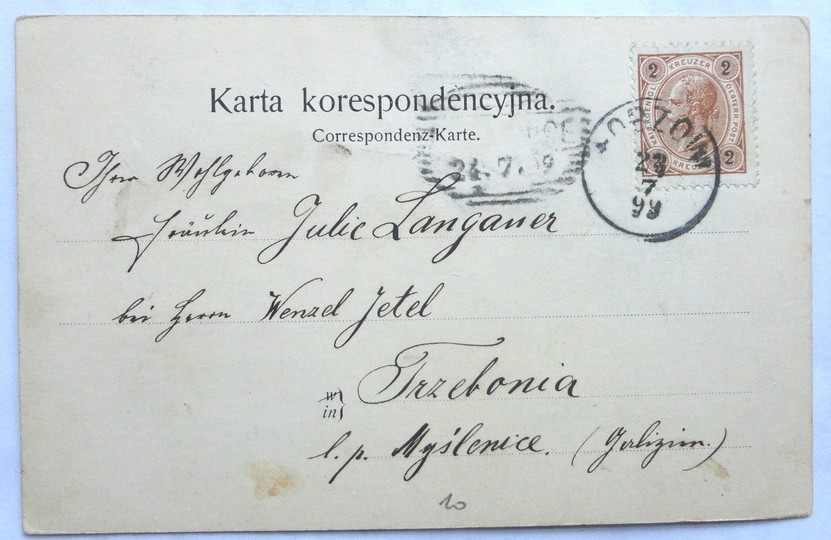 Karta korespondencyjna.
Correspondenz-Karte.
2 KREUZER 2
KAIS. KOENIGL. OESTERR. POST
KREUZER 2
24. 7. 99
7
99
Ihro Wohlgeboren
Fräulein Julie Langauer
bei Herrn Wenzel Jetel
w
in Trzebonia
l. p. Myślenice. (Galizien.)
10